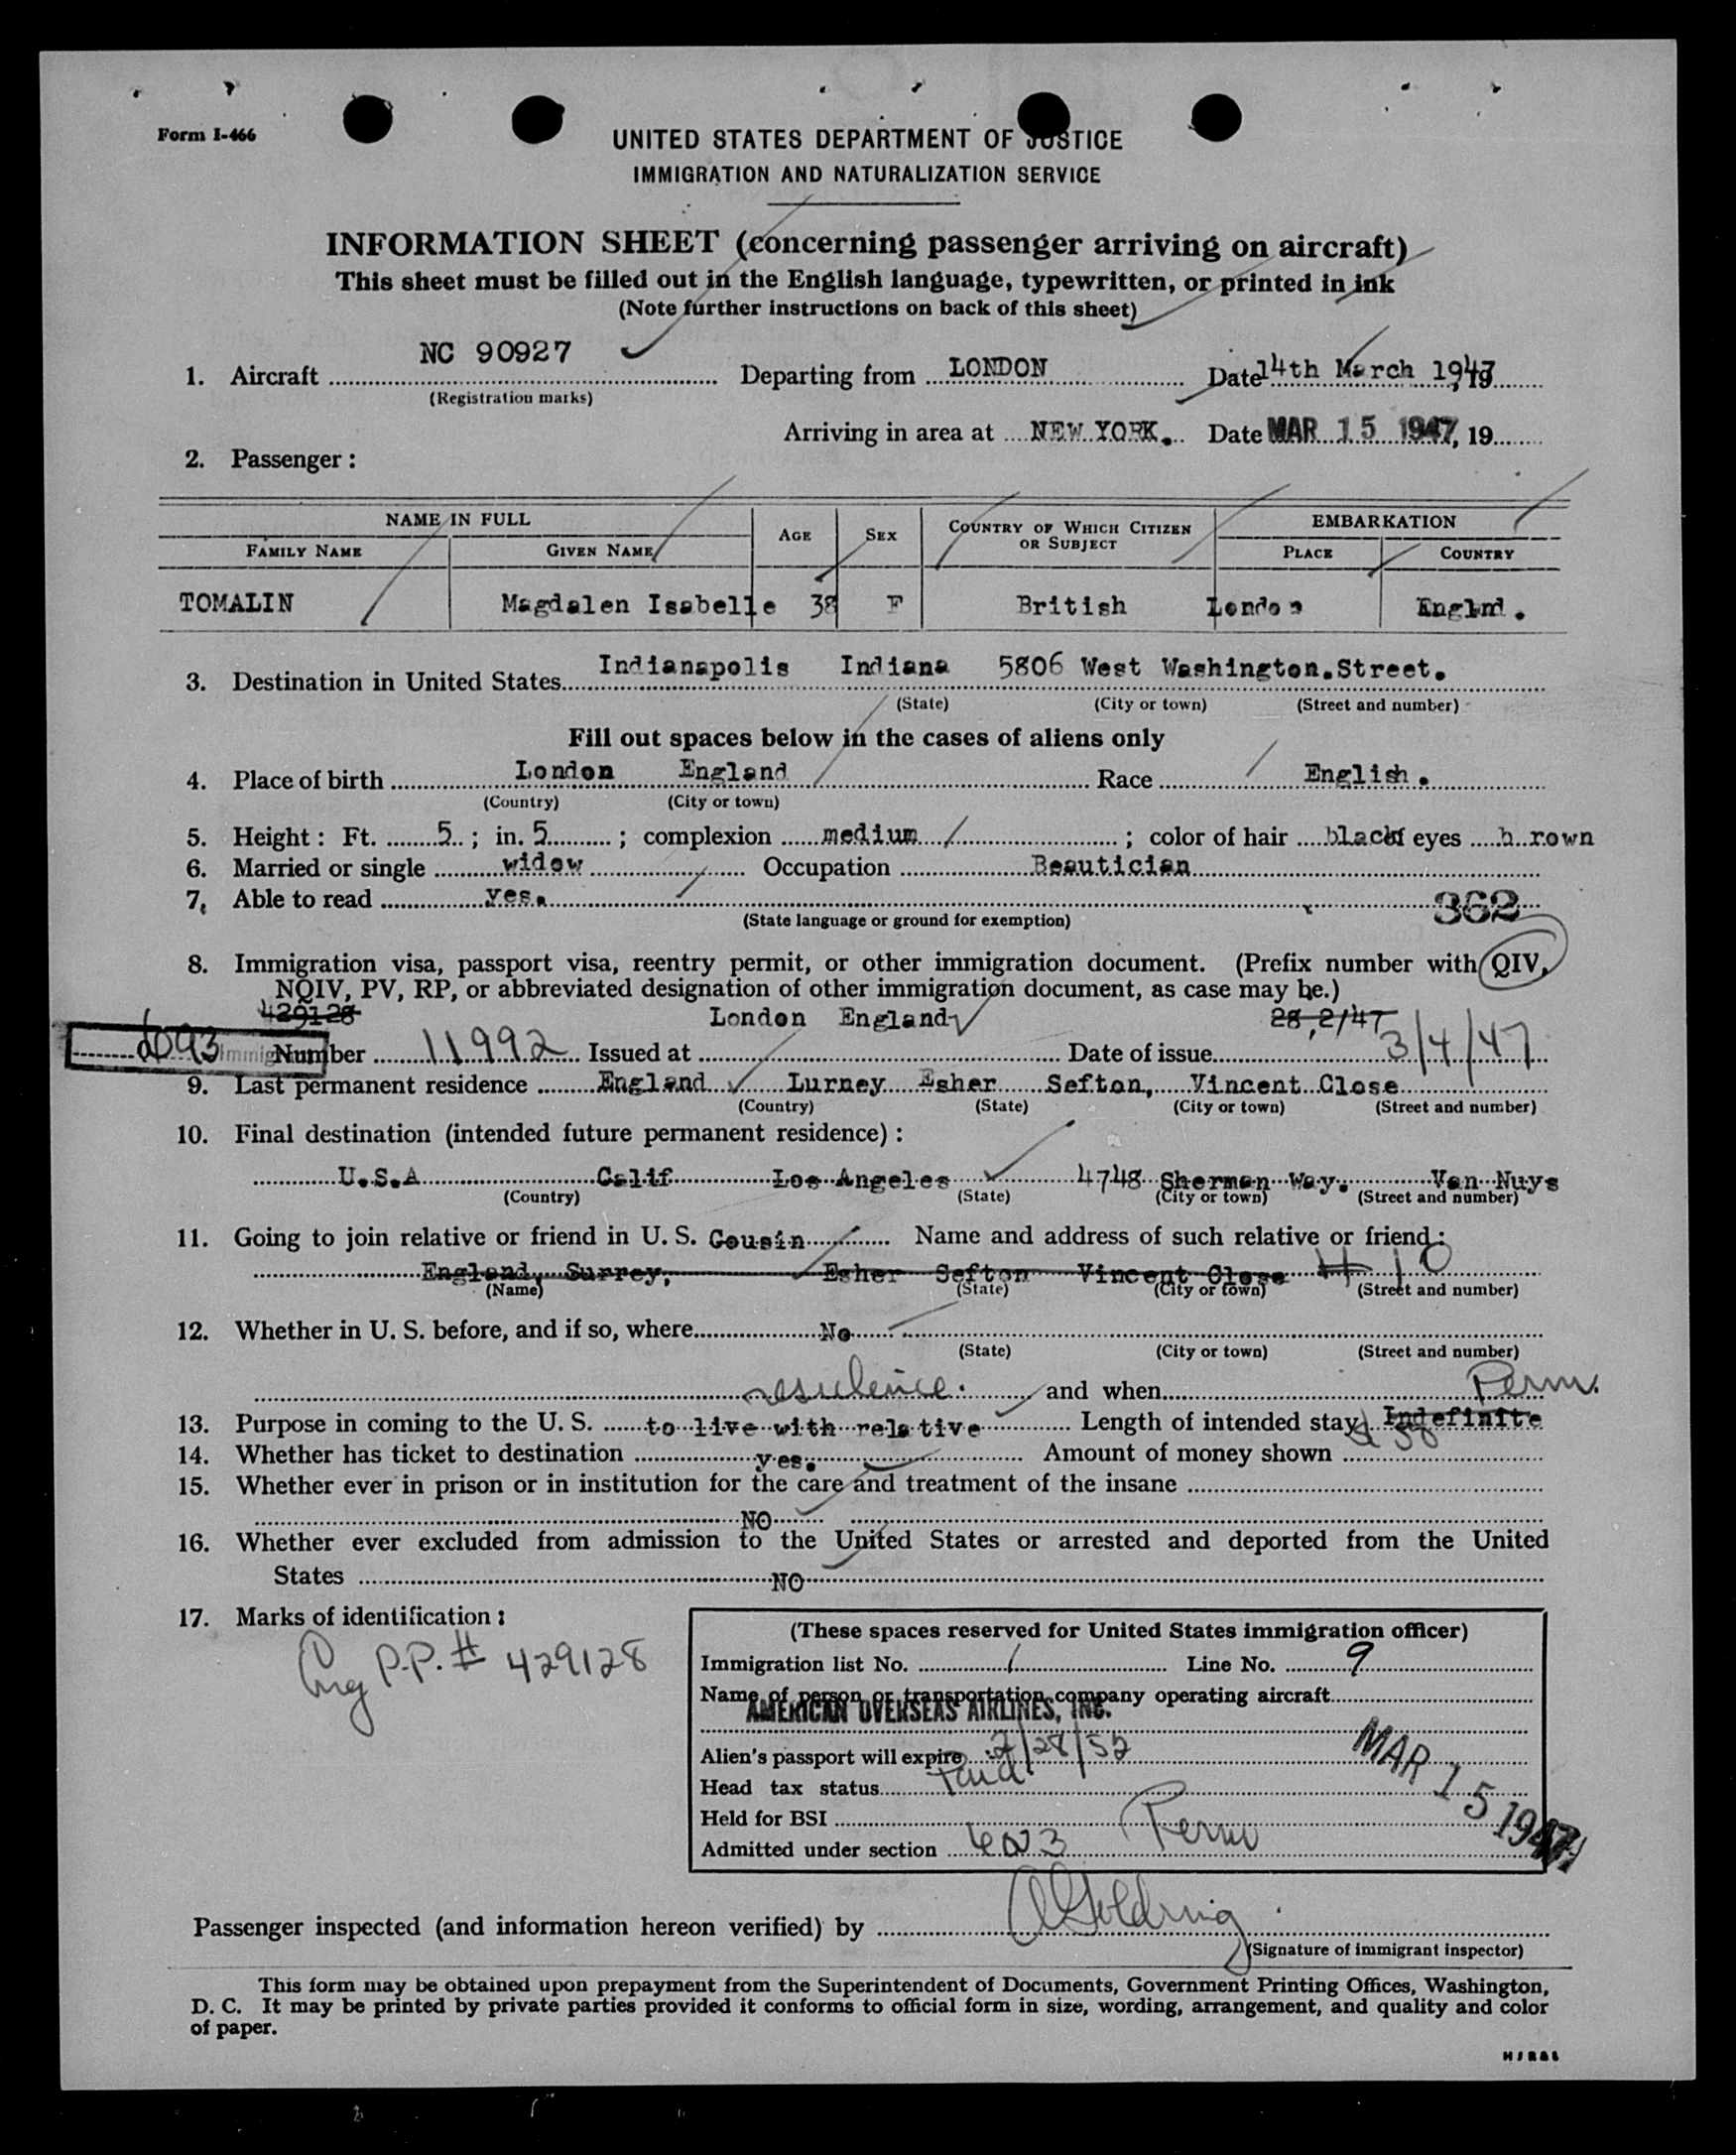 Form I-466
UNITED STATES DEPARTMENT OF JUSTICE
IMMIGRATION AND NATURALIZATION SERVICE
INFORMATION SHEET (concerning passenger arriving on aircraft)
This sheet must be filled out in the English language, typewritten, or printed in ink
(Note further instructions on back of this sheet)
NC 90927
1. Aircraft Departing from LONDON Date 14th March 1947
(Registration marks)
Arriving in area at NEW YORK. Date MAR 15 1947, 19
2. Passenger:
NAME IN FULL AGE SEX COUNTRY OF WHICH CITIZEN OR SUBJECT EMBARKATION
FAMILY NAME GIVEN NAME PLACE COUNTRY
TOMALIN Magdalen Isabelle 38 F British London Englnd.
3. Destination in United States Indianapolis Indiana 5806 West Washington.Street.
(State) (City or town) (Street and number)
Fill out spaces below in the cases of aliens only
4. Place of birth London England Race English.
(Country) (City or town)
5. Height: Ft. 5 ; in. 5 ; complexion medium ; color of hair black eyes b rown
6. Married or single widow Occupation Beautician
7. Able to read yes.
(State language or ground for exemption) 362
8. Immigration visa, passport visa, reentry permit, or other immigration document. (Prefix number with QIV,
NQIV, PV, RP, or abbreviated designation of other immigration document, as case may be.)
429128 London England 28,2/47
Number 11992 Issued at Date of issue 3/4/47
9. Last permanent residence England Lurney Esher Sefton, Vincent Close
(Country) (State) (City or town) (Street and number)
10. Final destination (intended future permanent residence):
U.S.A Calif Los Angeles 4748 Sherman Way. Van Nuys
(Country) (State) (City or town) (Street and number)
11. Going to join relative or friend in U. S. Cousin Name and address of such relative or friend:
England, Surrey, Esher Sefton Vincent Close # 10
(Name) (State) (City or town) (Street and number)
12. Whether in U. S. before, and if so, where No
(State) (City or town) (Street and number)
residence. and when Perm.
13. Purpose in coming to the U. S. to live with relative Length of intended stay Indefinite
14. Whether has ticket to destination yes. Amount of money shown
15. Whether ever in prison or in institution for the care and treatment of the insane
NO
16. Whether ever excluded from admission to the United States or arrested and deported from the United
States NO
17. Marks of identification:
P.P. # 429128
(These spaces reserved for United States immigration officer)
Immigration list No. 1 Line No. 9
Name of person or transportation company operating aircraft
AMERICAN OVERSEAS AIRLINES, INC.
Alien's passport will expire 2/28/52
Head tax status Paid
MAR 15 1947
Held for BSI
Admitted under section Perm
Passenger inspected (and information hereon verified) by
(Signature of immigrant inspector)
This form may be obtained upon prepayment from the Superintendent of Documents, Government Printing Offices, Washington,
D. C. It may be printed by private parties provided it conforms to official form in size, wording, arrangement, and quality and color
of paper.